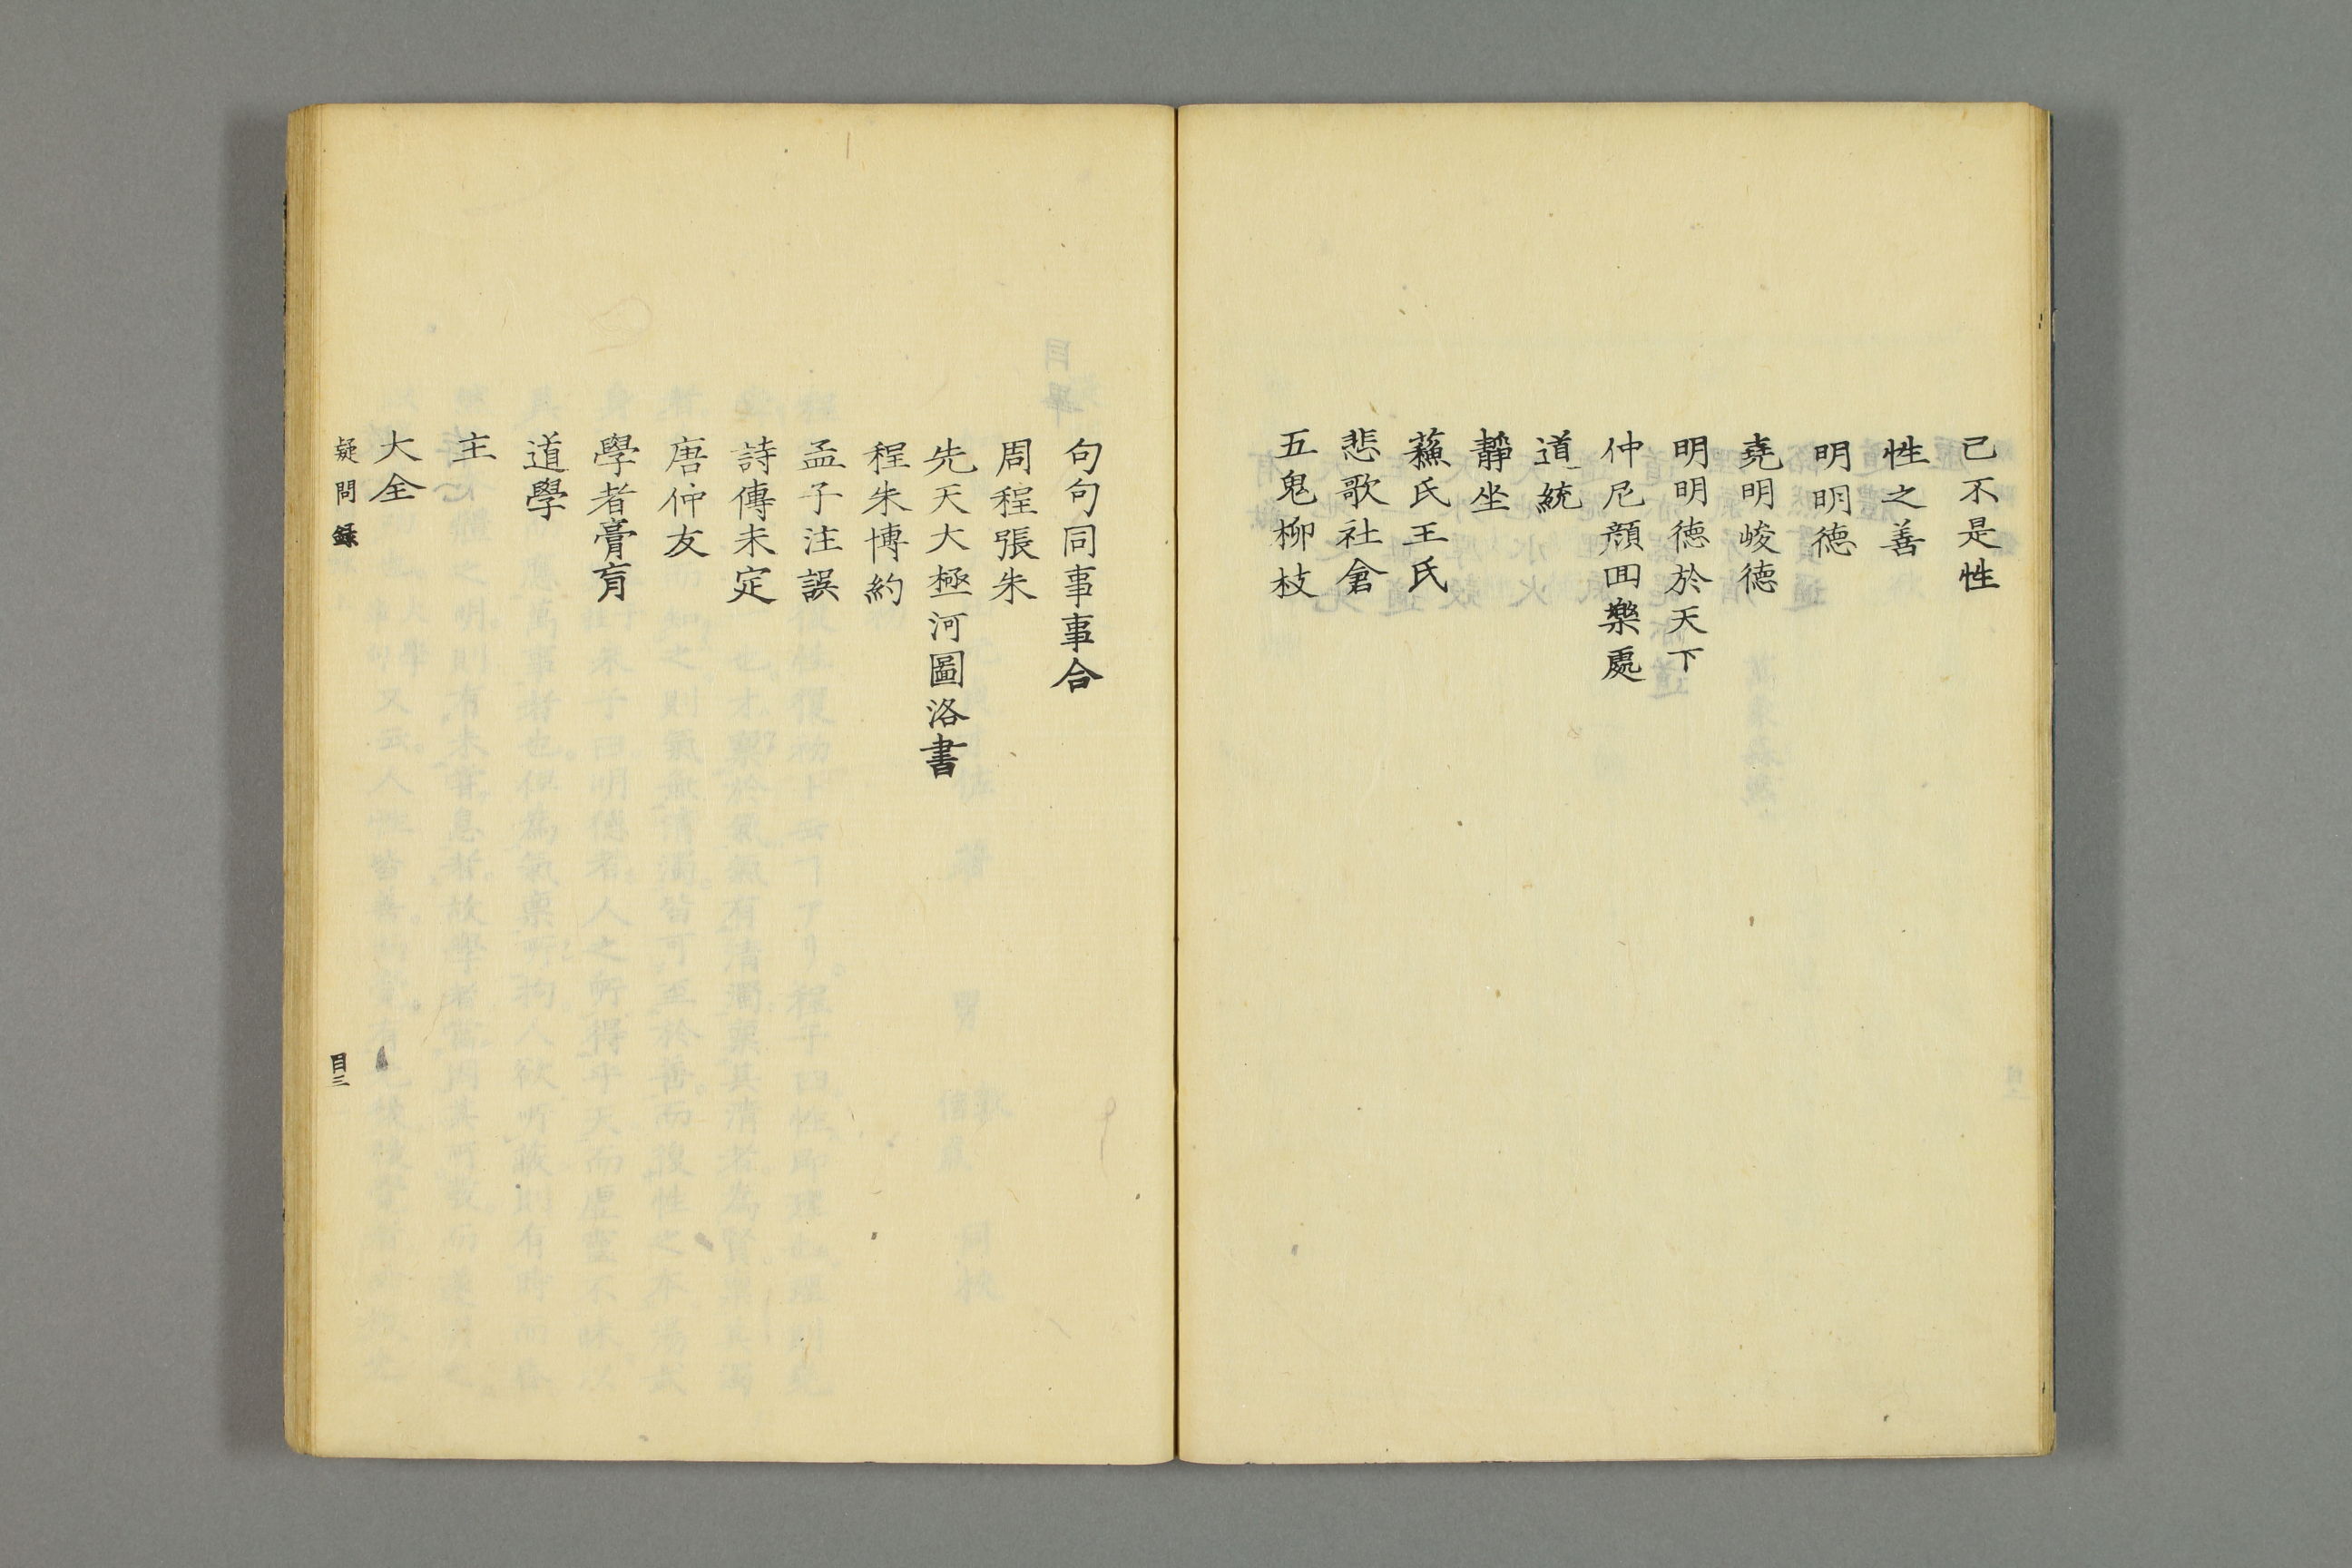 己不是性
性之善
明明德
堯明峻德
明明德於天下
仲尼顏回樂處
道統
靜坐
蘓氏王氏
悲歌社倉
五鬼柳枝
句句同事事合
周程張朱
先天大極河圖洛書
程朱博約
孟子注誤
詩傳未定
唐仲友
學者膏肓
道學
主一
大全
疑問録
目三